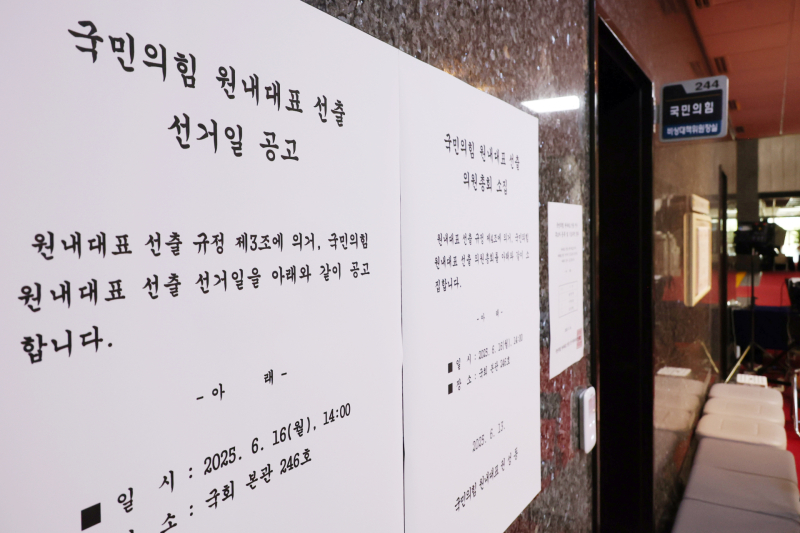 국민의힘 원내대표 선출
선거일 공고
원내대표 선출 규정 제3조에 의거, 국민의힘
원내대표 선출 선거일을 아래와 같이 공고
합니다.
- 아 래 -
■ 일 시 : 2025. 6. 16(월), 14:00
소 : 국회 본관 246호
국민의힘 원내대표 선출
의원총회 소집
원내대표 선출 규정 에 의거, 국민의힘
원내대표 선출 의원총회를 아래와 같이 소
집합니다.
- 아 래 -
■ 일 시 : 2025. 6. 16(월), 14:00
■ 장 소 : 국회 본관 246호
2025. 6. 13.
국민의힘 원내대표 권 성 동
244
국민의힘
비상대책위원장실